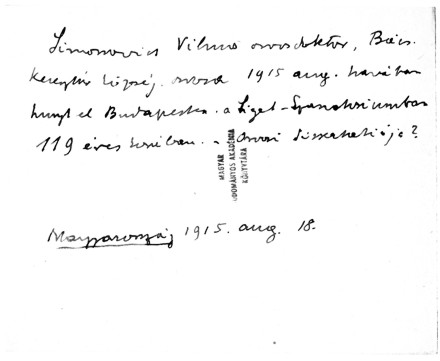 Simonovics Vilmos orvosdoktor, Bács
keresztúr község orvosa 1915 aug. havában
hunyt el Budapesten a Liget-Szanatóriumban
119 éves korában. - Orvosi disszertatiója?
MAGYAR
TUDOMÁNYOS AKADÉMIA
KÖNYVTÁRA
Magyarország 1915. aug. 18.